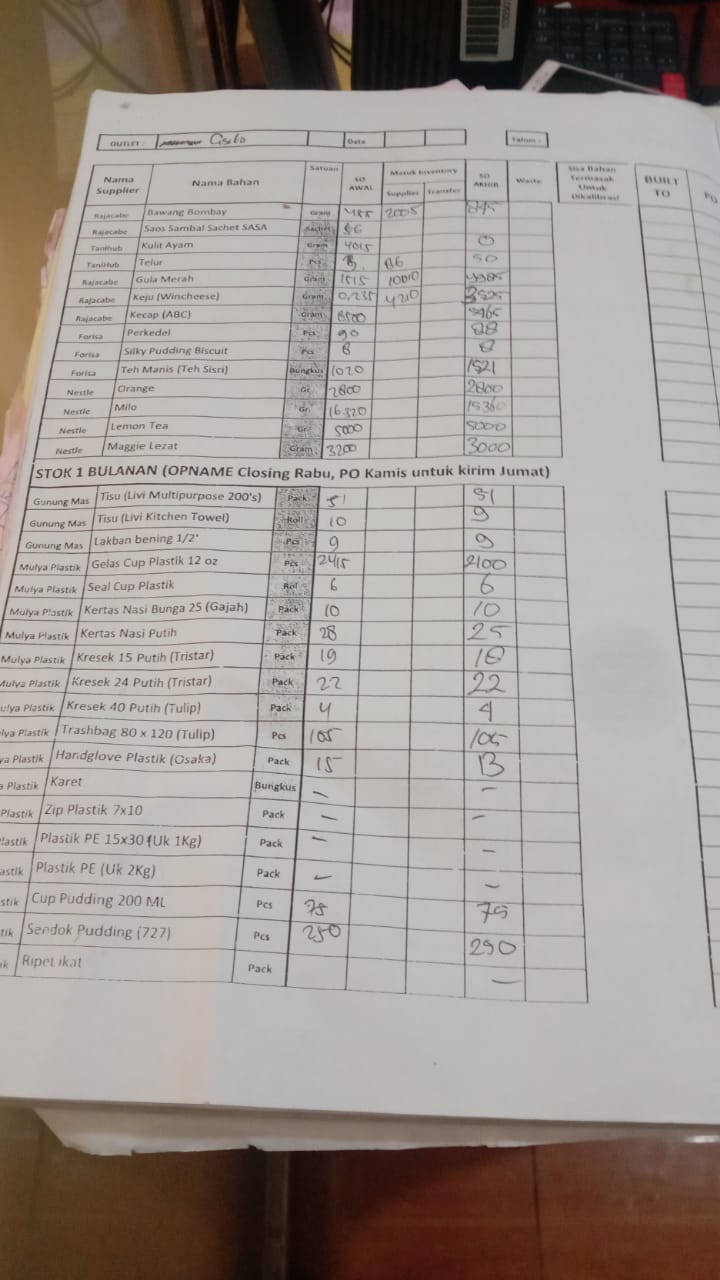 OUTLET : Cisito Date Telom :
Nama Supplier Nama Bahan Satuan SO AWAL Masuk Inventory Supplier Transfer SO AKHIR Waste Sisa Bahan Termasak Untuk Dikalibrasi BUILT TO PO
Rajacabe Bawang Bombay Gram 2005
Rajacabe Saos Sambal Sachet SASA Sachet
TaniHub Kulit Ayam Gram 4015 0
TaniHub Telur Pcs 50
Rajacabe Gula Merah Gram 1515 10010
Rajacabe Keju (Wincheese) Gram 0,235 4210
Rajacabe Kecap (ABC) Gram 6500
Forisa Perkedel Pcs 90 88
Forisa Silky Pudding Biscuit Pcs 8 8
Forisa Teh Manis (Teh Sisri) Bungkus 1020
Nestle Orange Gr 2800 2800
Nestle Milo Gr 16.320 15360
Nestle Lemon Tea Gr 5000 5000
Nestle Maggie Lezat Gram 3200 3000
STOK 1 BULANAN (OPNAME Closing Rabu, PO Kamis untuk kirim Jumat)
Gunung Mas Tisu (Livi Multipurpose 200's) Pack 51 51
Gunung Mas Tisu (Livi Kitchen Towel) Roll 10 9
Gunung Mas Lakban bening 1/2' Pcs 9 9
Mulya Plastik Gelas Cup Plastik 12 oz Pcs 2415 2100
Mulya Plastik Seal Cup Plastik Rol 6 6
Mulya Plastik Kertas Nasi Bunga 25 (Gajah) Pack 10 10
Mulya Plastik Kertas Nasi Putih Pack 28 25
Mulya Plastik Kresek 15 Putih (Tristar) Pack 19 18
Mulya Plastik Kresek 24 Putih (Tristar) Pack 22 22
ulya Plastik Kresek 40 Putih (Tulip) Pack 4 4
lya Plastik Trashbag 80 x 120 (Tulip) Pcs 105 105
ya Plastik Handglove Plastik (Osaka) Pack 15 13
a Plastik Karet Bungkus - -
Plastik Zip Plastik 7x10 Pack - -
lastik Plastik PE 15x30 (Uk 1Kg) Pack - -
astik Plastik PE (Uk 2Kg) Pack - -
stik Cup Pudding 200 ML Pcs 75 75
tik Sendok Pudding (727) Pcs 250 290
ik Ripet ikat Pack -